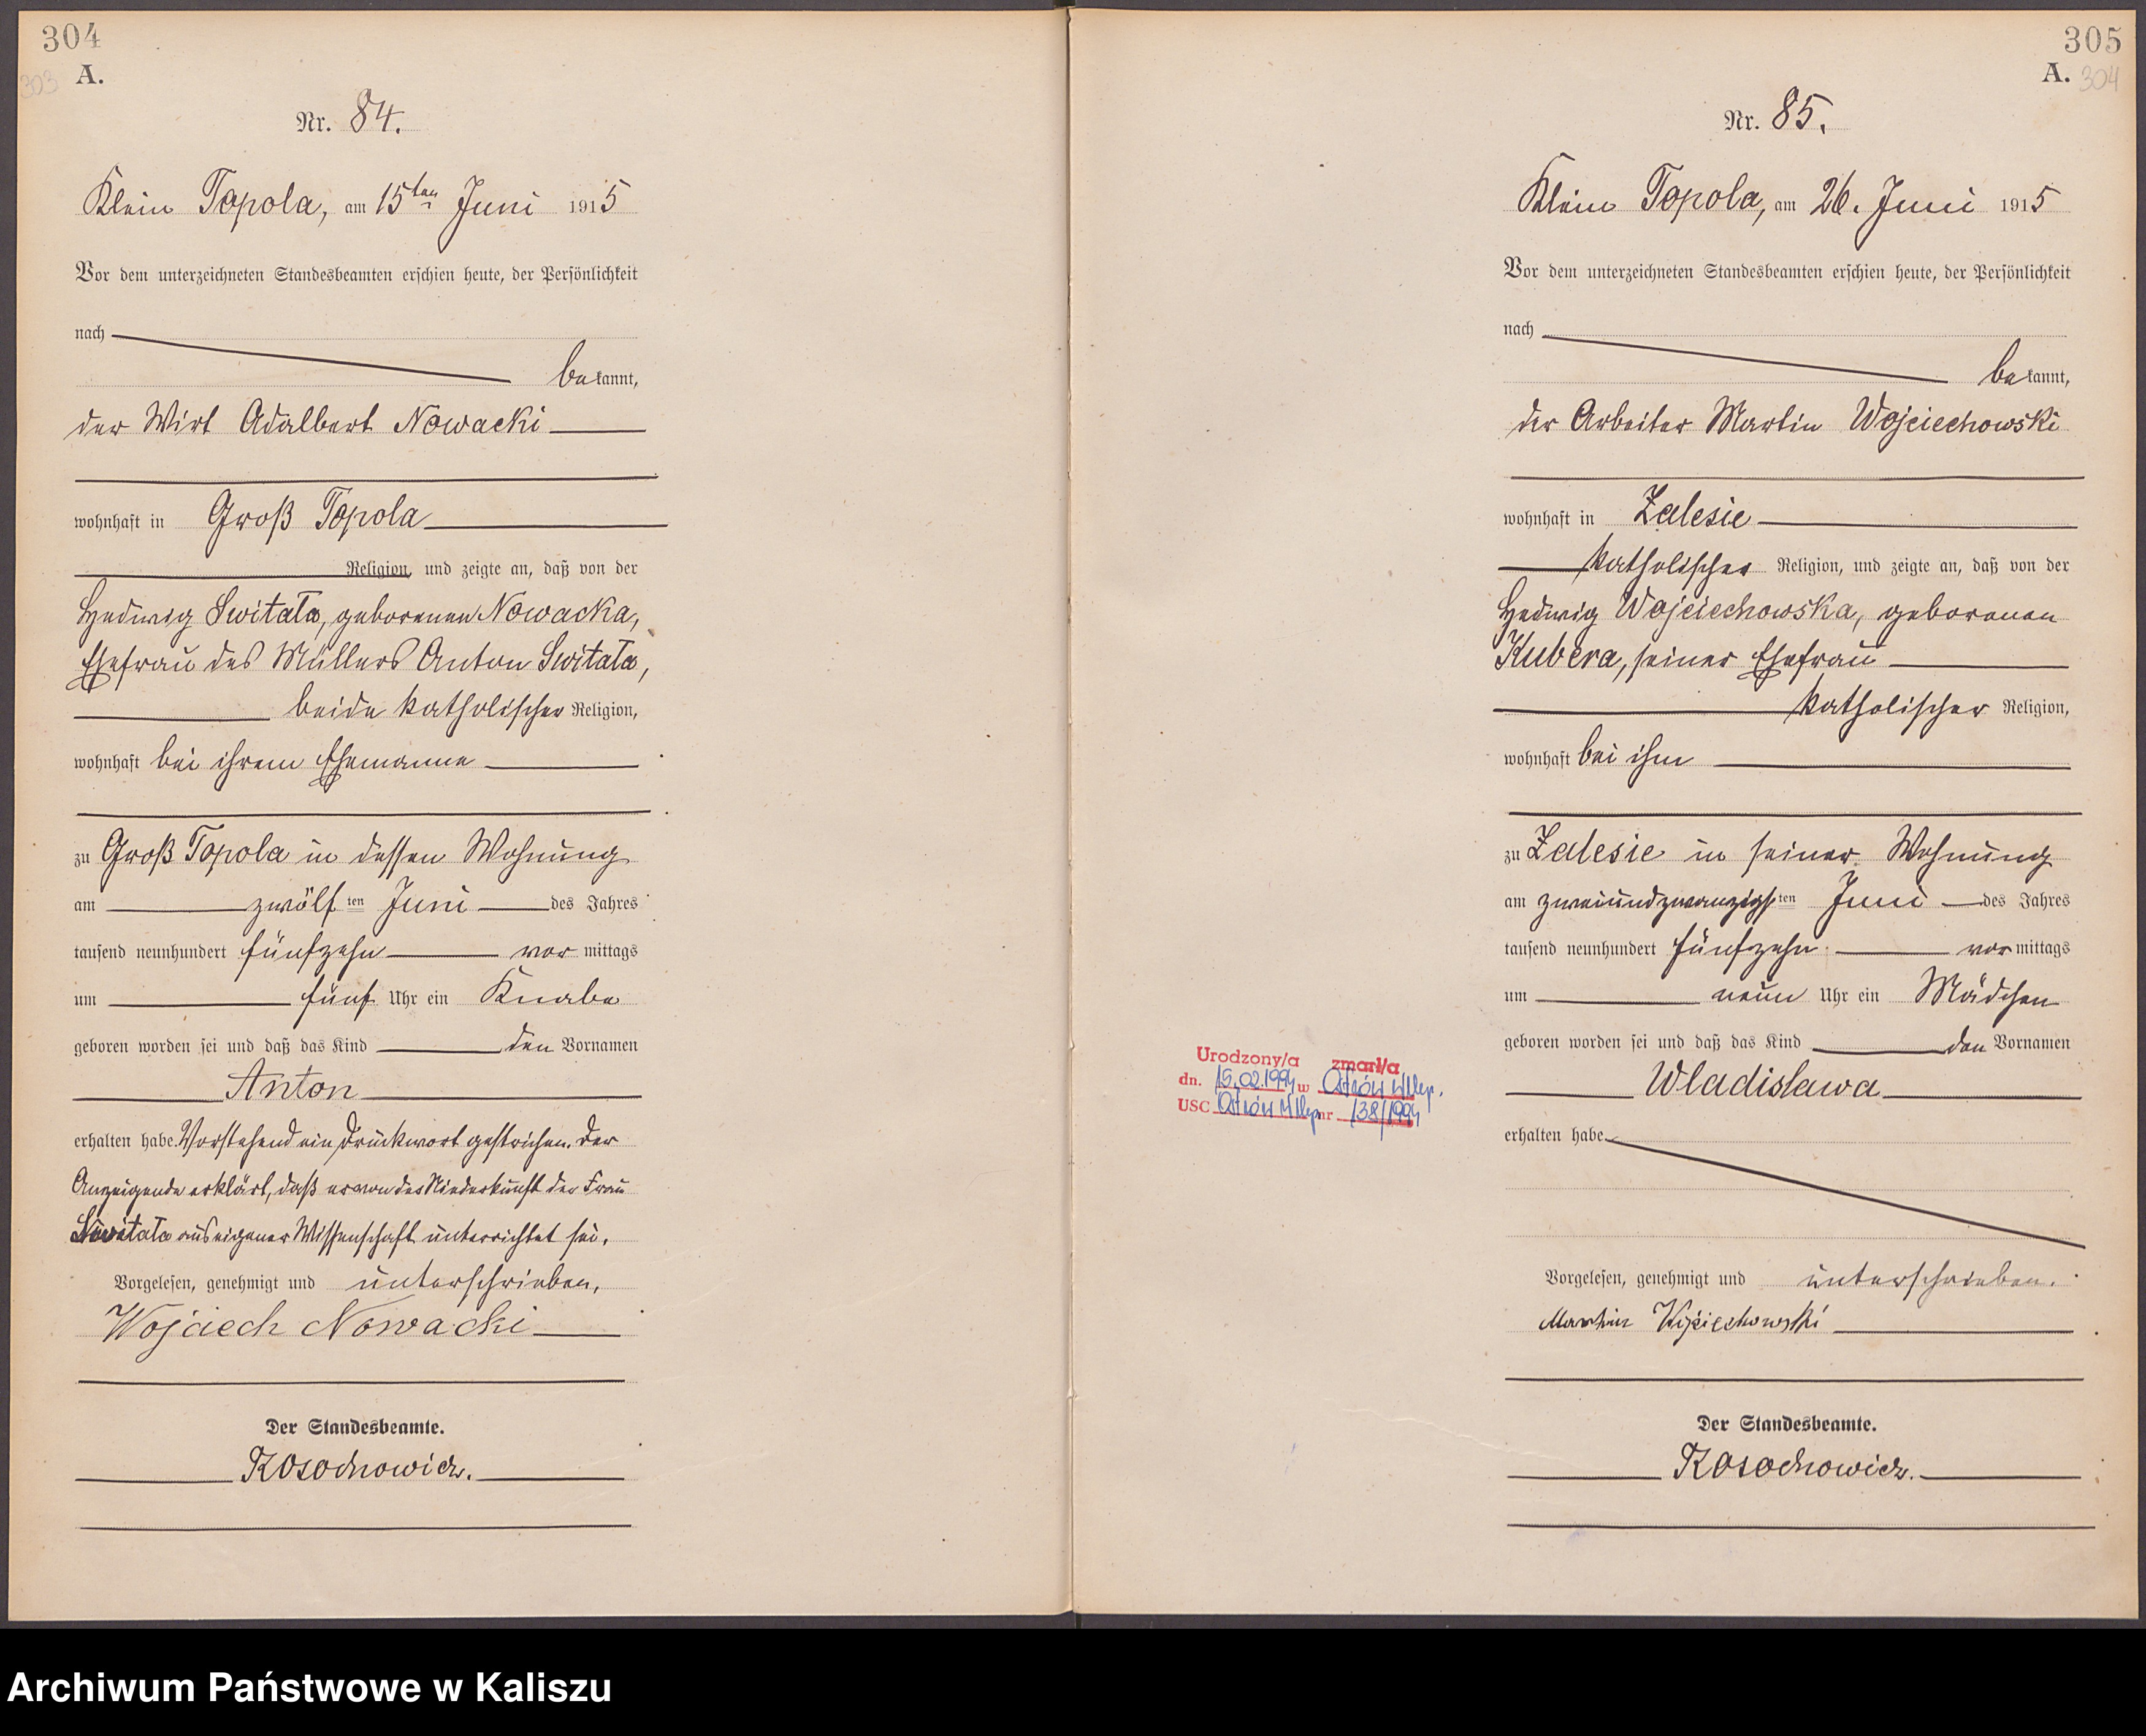 304
303 A.
Nr. 84.
Klein Topola, am 15ten Juni 1915
Vor dem unterzeichneten Standesbeamten erschien heute, der Persönlichkeit
nach
bekannt,
der Wirt Adalbert Nowacki
wohnhaft in Groß Topola
Religion, und zeigte an, daß von der
Hedwig Switała, geborenen Nowacka,
Ehefrau des Müllers Anton Switała,
beide katholischer Religion,
wohnhaft bei ihrem Ehemanne
zu Groß Topola in dessen Wohnung
am zwölf ten Juni des Jahres
tausend neunhundert fünfzehn vor mittags
um fünf Uhr ein Knabe
geboren worden sei und daß das Kind den Vornamen
Anton
erhalten habe. Vorstehend ein Druckwort gestrichen. Der
Anzeigende erklärt, daß er von der Niederkunft der Frau
Switała aus eigener Wissenschaft unterrichtet sei.
Vorgelesen, genehmigt und unterschrieben.
Wojciech Nowacki
Der Standesbeamte.
Kosochowicz.
305
A. 304
Nr. 85.
Klein Topola, am 26. Juni 1915
Vor dem unterzeichneten Standesbeamten erschien heute, der Persönlichkeit
nach
bekannt,
der Arbeiter Martin Wojciechowski
wohnhaft in Zalesie
katholischer Religion, und zeigte an, daß von der
Hedwig Wojciechowska, geborenen
Kubera, seiner Ehefrau
katholischer Religion,
wohnhaft bei ihm
zu Zalesie in seiner Wohnung
am zweiundzwanzigsten Juni des Jahres
tausend neunhundert fünfzehn vor mittags
um neun Uhr ein Mädchen
geboren worden sei und daß das Kind den Vornamen
Wladislawa
erhalten habe
Vorgelesen, genehmigt und unterschrieben.
Martin Wojciechowski
Der Standesbeamte.
Kosochowicz.
Urodzony/a zmarł/a
dn. 15.02.1994 w Ostrów Wlkp.
USC Ostrów Wlkp. nr 138/1994
Archiwum Państwowe w Kaliszu